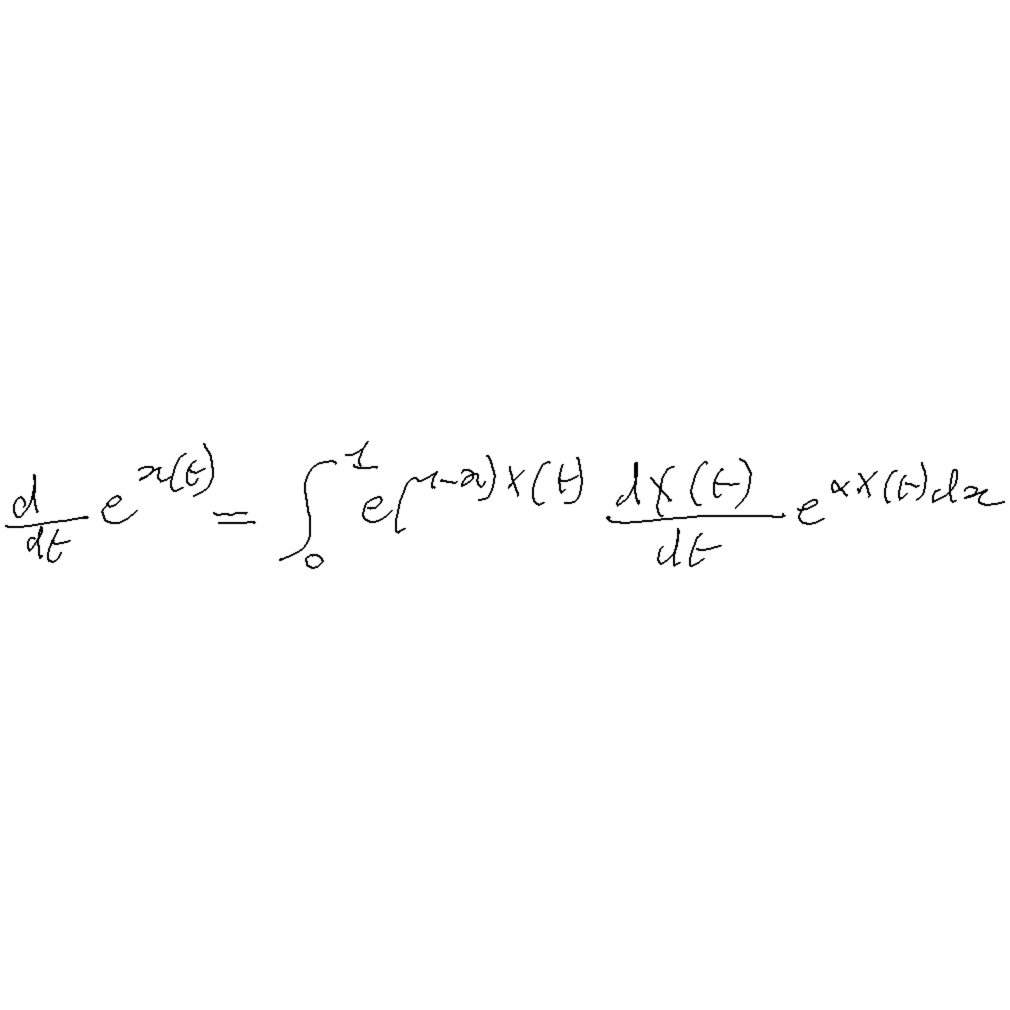 \frac{d}{dt} e^{x(t)} = \int_0^1 e^{(1-x) X(t)} \frac{dX(t)}{dt} e^{\alpha X(t)} dx